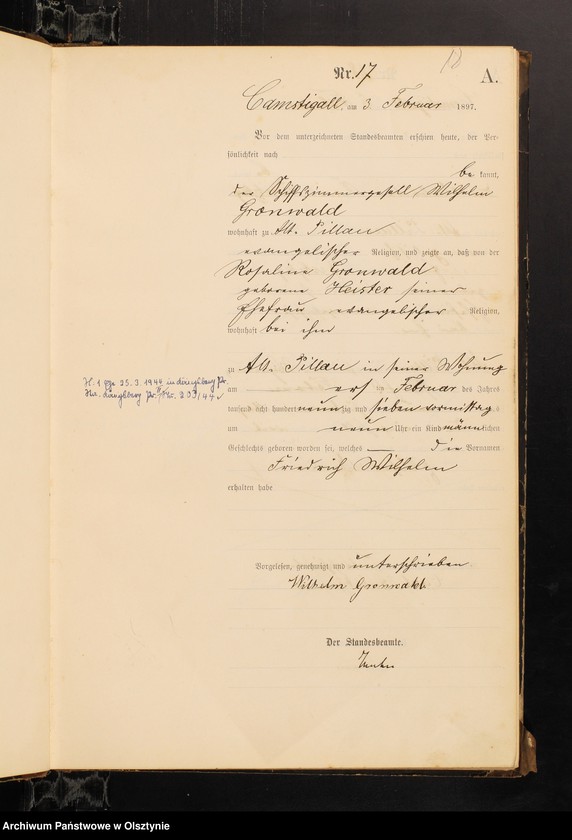 18
Nr. 17 A.
Camstigall, am 3. Februar 1897.
Vor dem unterzeichneten Standesbeamten erschien heute, der Per-
sönlichkeit nach
be kannt,
der Schiffszimmergesell Wilhelm
Gronwald
wohnhaft zu Alt-Pillau
evangelischer Religion, und zeigte an, daß von der
Rosaline Gronwald
geborene Heister seiner
Ehefrau evangelischer Religion,
wohnhaft bei ihm
zu Alt-Pillau in seiner Wohnung
am ersten Februar des Jahres
tausend acht hundert neunzig und sieben vormittags
um neun Uhr ein Kind männlichen
Geschlechts geboren worden sei, welches — die Vornamen
Friedrich Wilhelm
erhalten habe
H. 1 25. 3. 1944 in Königsberg Pr.
Sta. Königsberg Pr. Nr. 203/44
Vorgelesen, genehmigt und unterschrieben
Wilhelm Gronwald
Der Standesbeamte.
Archiwum Państwowe w Olsztynie